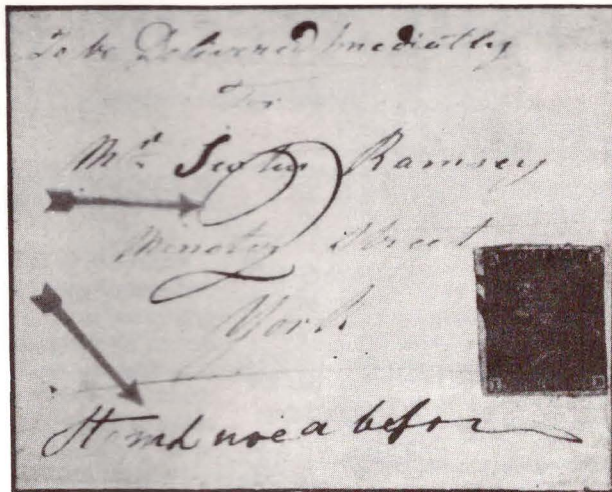 To be Delivered Imediatly
For
Mr. Ramsey
2
Minster Street
York
Stamp used before